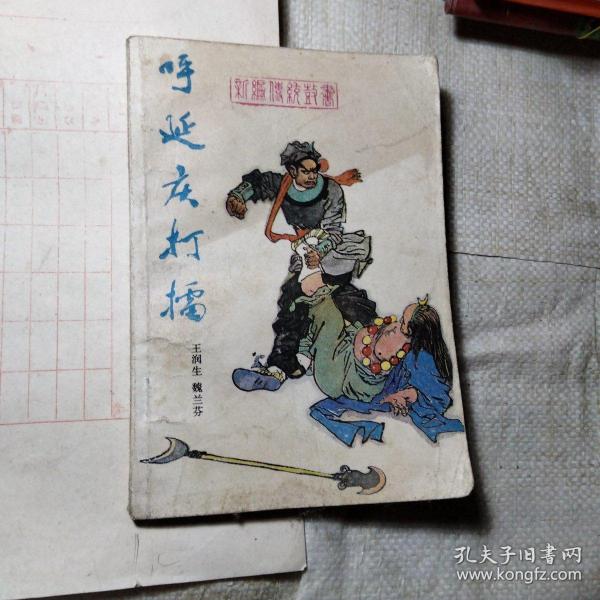 呼延庆打擂
新编传统鼓书
王润生 魏兰芬
孔夫子旧书网
www.kongfz.com